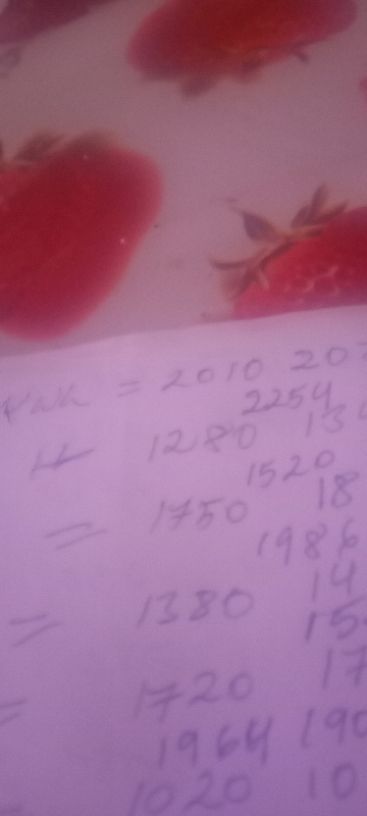 = 2010 20
2254
1280 13
1520
= 1750 18
1986
= 1380 14
15
= 1720 17
1964 190
1020 10